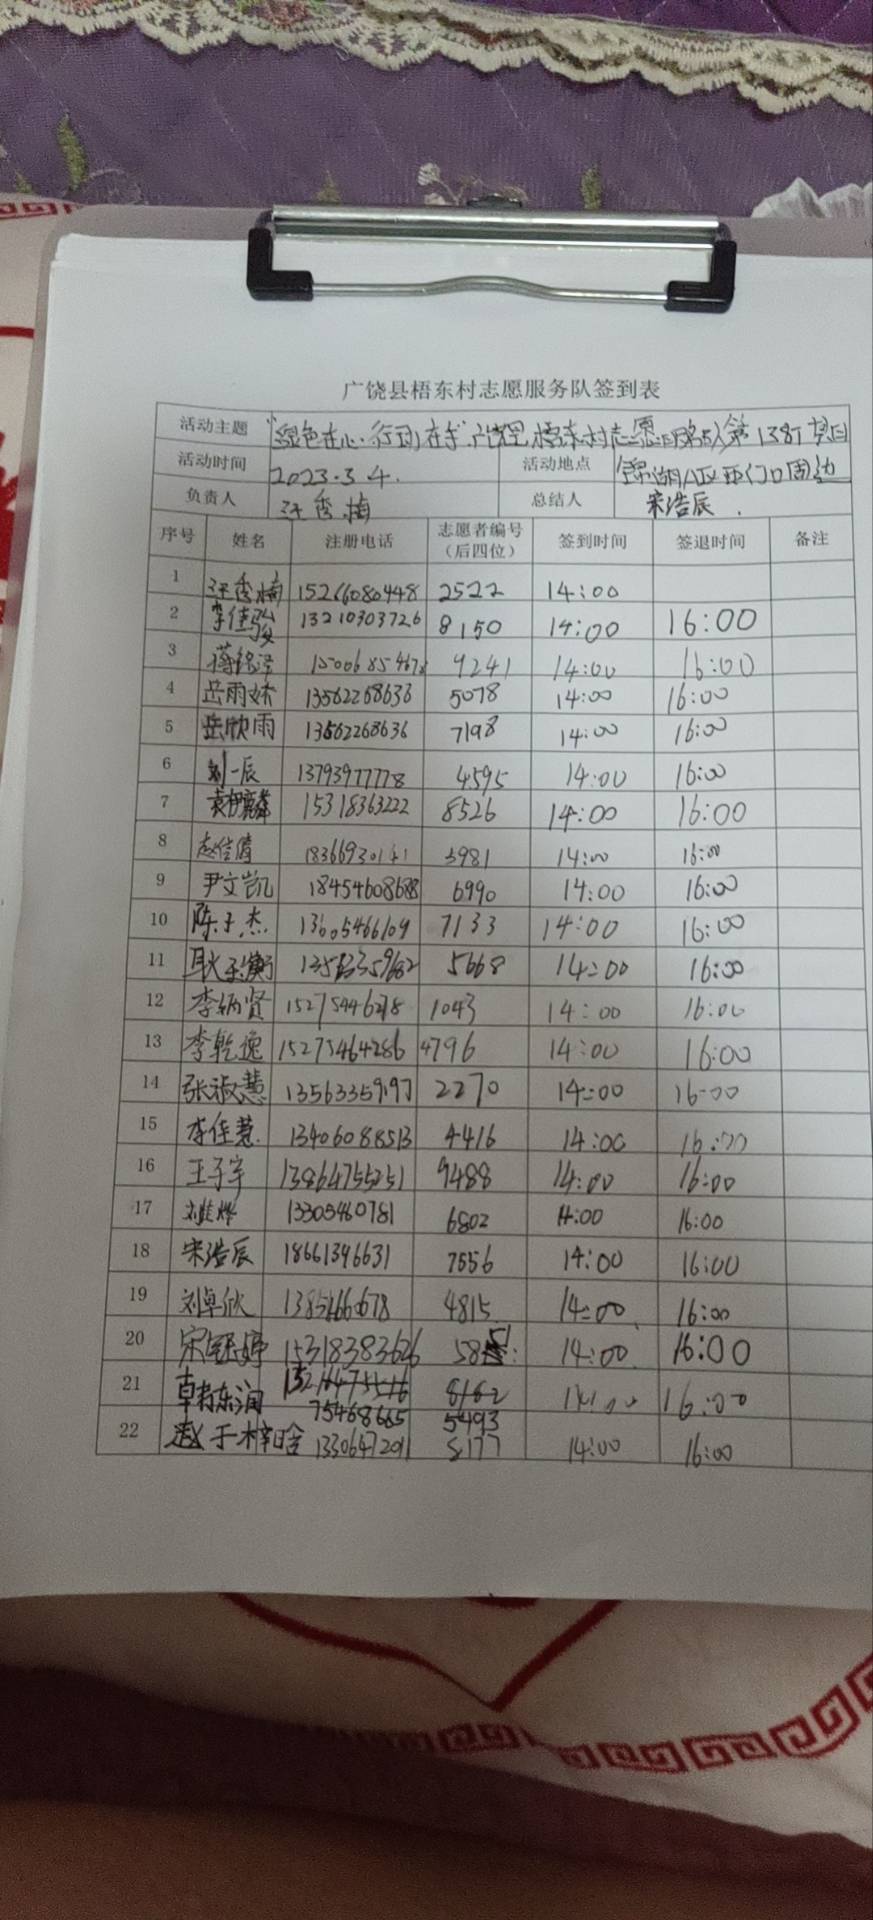 广饶县梧东村志愿服务队签到表
活动主题 "绿色在心·行动在手"广饶县梧东村志愿服务队第138次活动
活动时间 2023.3.4. 活动地点 锦湖小区西门口周边
负责人 汪秀梅 总结人 宋浩辰.
序号 姓名 注册电话 志愿者编号（后四位） 签到时间 签退时间 备注
1 汪秀梅 15266080448 2522 14:00
2 李佳骏 13210303726 8150 14:00 16:00
3 9241 14:00 16:00
4 岳雨娇 13562268636 5078 14:00 16:00
5 岳欣雨 13562268636 7198 14:00 16:00
6 刘一辰 13793977778 4595 14:00 16:00
7 15318363222 8526 14:00 16:00
8 18366930141 3981 14:00 16:00
9 尹文凯 18454608688 6990 14:00 16:00
10 陈子杰 13605466109 7133 14:00 16:00
11 5668 14:00 16:00
12 李炳贤 1043 14:00 16:00
13 李乾逸 15275464286 4796 14:00 16:00
14 张淑慧 2270 14:00 16:00
15 李佳慧 13406088513 4416 14:00 16:00
16 王子宇 13864755251 9488 14:00 16:00
17 13305460781 6802 14:00 16:00
18 宋浩辰 18661396631 7556 14:00 16:00
19 刘卓欣 4815 14:00 16:00
20 15318383626 14:00 16:00
21 8162 14:00 16:00
75468665 5493
22 13306472011 5177 14:00 16:00